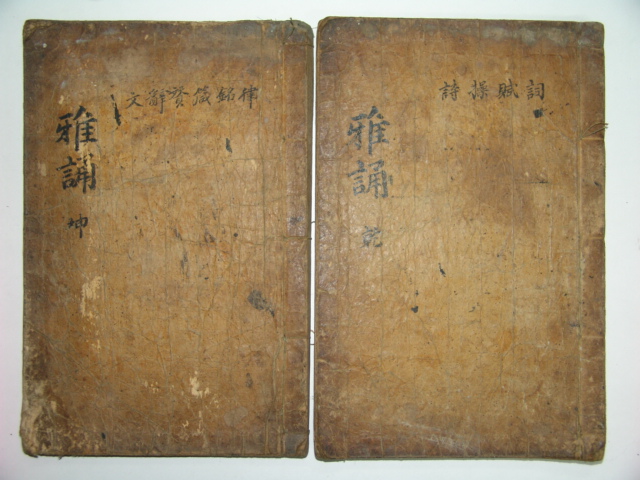 詞賦操詩
雅誦
乾
律銘箴贊辭文
雅誦
坤